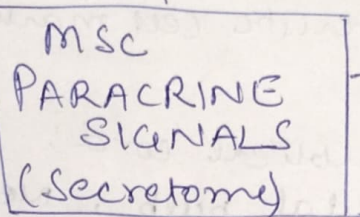 MSC
PARACRINE
SIGNALS
(Secretome)